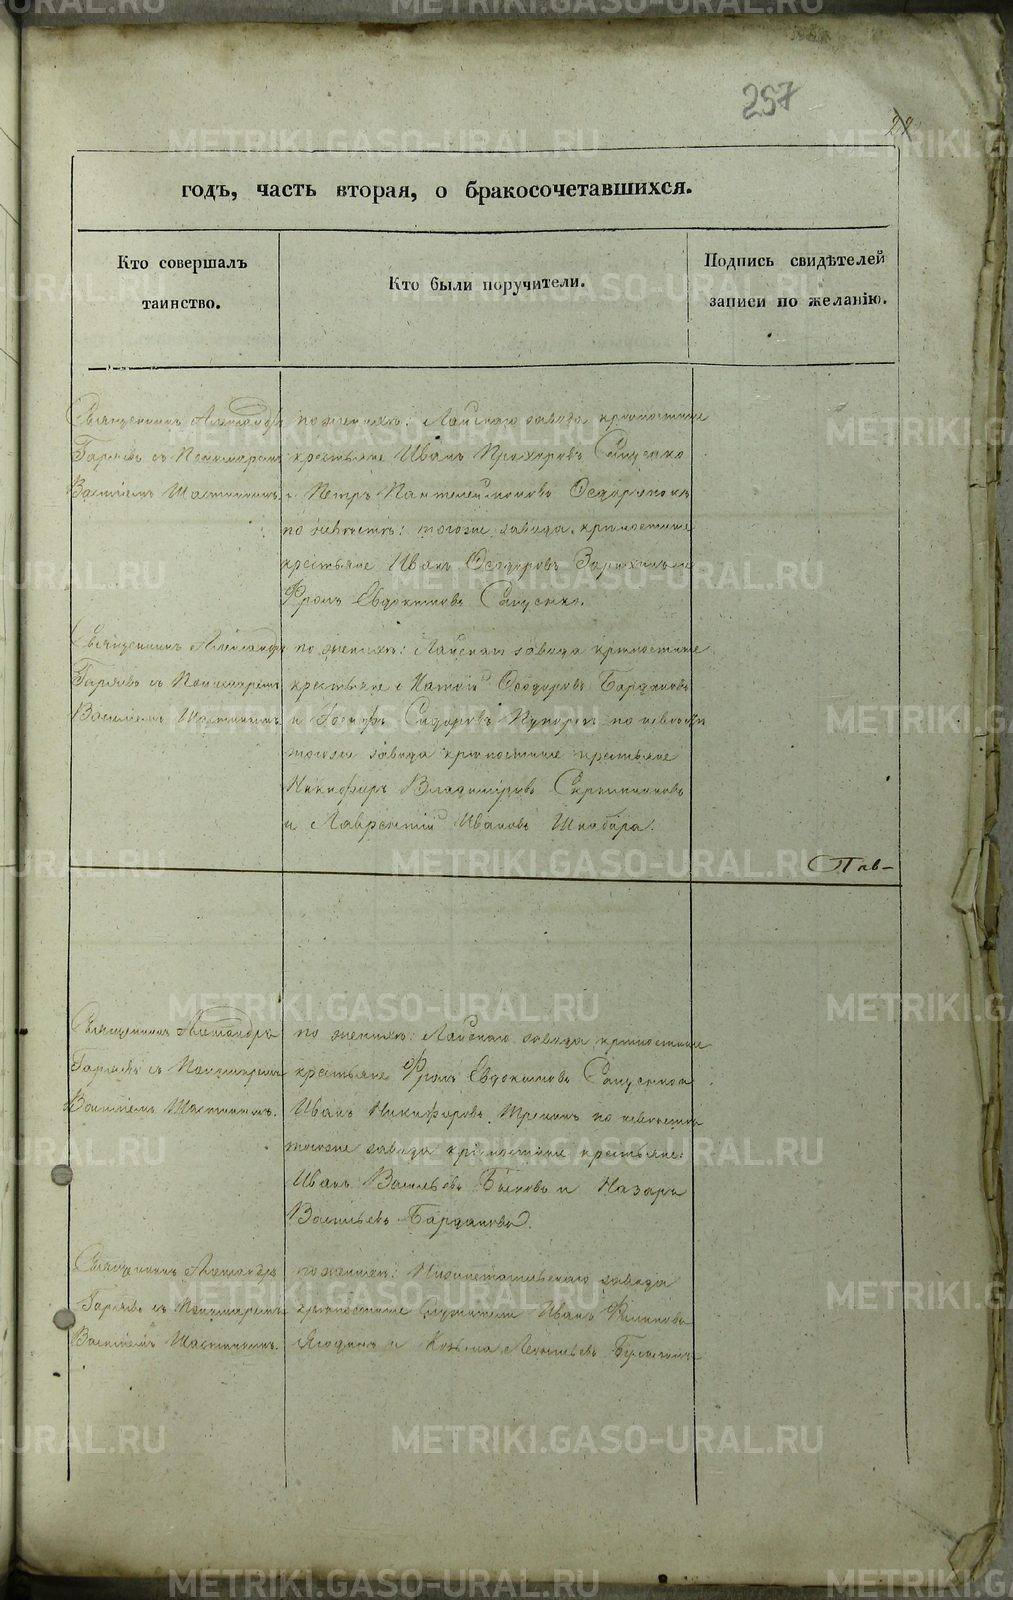 257
27
годъ, часть вторая, о бракосочетавшихся.
Кто совершалъ
таинство.
Кто были поручители.
Подпись свидѣтелей
записи по желанію.
Священникъ Александръ
Гаряевъ съ Пономаремъ
Василіемъ
по женихѣ: Лайскаго завода крѣпостные
крестьяне Иванъ Прохоровъ
и Петръ Пантелеймоновъ
по невѣстѣ: тогоже завода крѣпостные
крестьяне Иванъ Ѳедоровъ
Фролъ Евдокимовъ
Священникъ Александръ
Гаряевъ съ Пономаремъ
Василіемъ
по женихѣ: Лайскаго завода крѣпостные
крестьяне Ѳеодоровъ Бардаковъ
и Іосифъ Сидоровъ по невѣстѣ
тогоже завода крѣпостные крестьяне
Никифоръ Владиміровъ
и Лаврентій Ивановъ Шкабара.
Пав-
Священникъ Александръ
Гаряевъ съ Пономаремъ
Василіемъ
по женихѣ: Лайскаго завода крѣпостные
крестьяне Фролъ Евдокимовъ
Иванъ Никифоровъ по невѣстѣ
тогоже завода крѣпостные крестьяне:
Иванъ Васильевъ Быковъ и Назаръ
Васильевъ Бардаковъ.
Священникъ Александръ
Гаряевъ съ Пономаремъ
Василіемъ
по женихѣ: Нижнетагильскаго завода
крѣпостные служители Иванъ Филиповъ
Ягодинъ и Козьма Леонтьевъ
METRIKI.GASO-URAL.RU